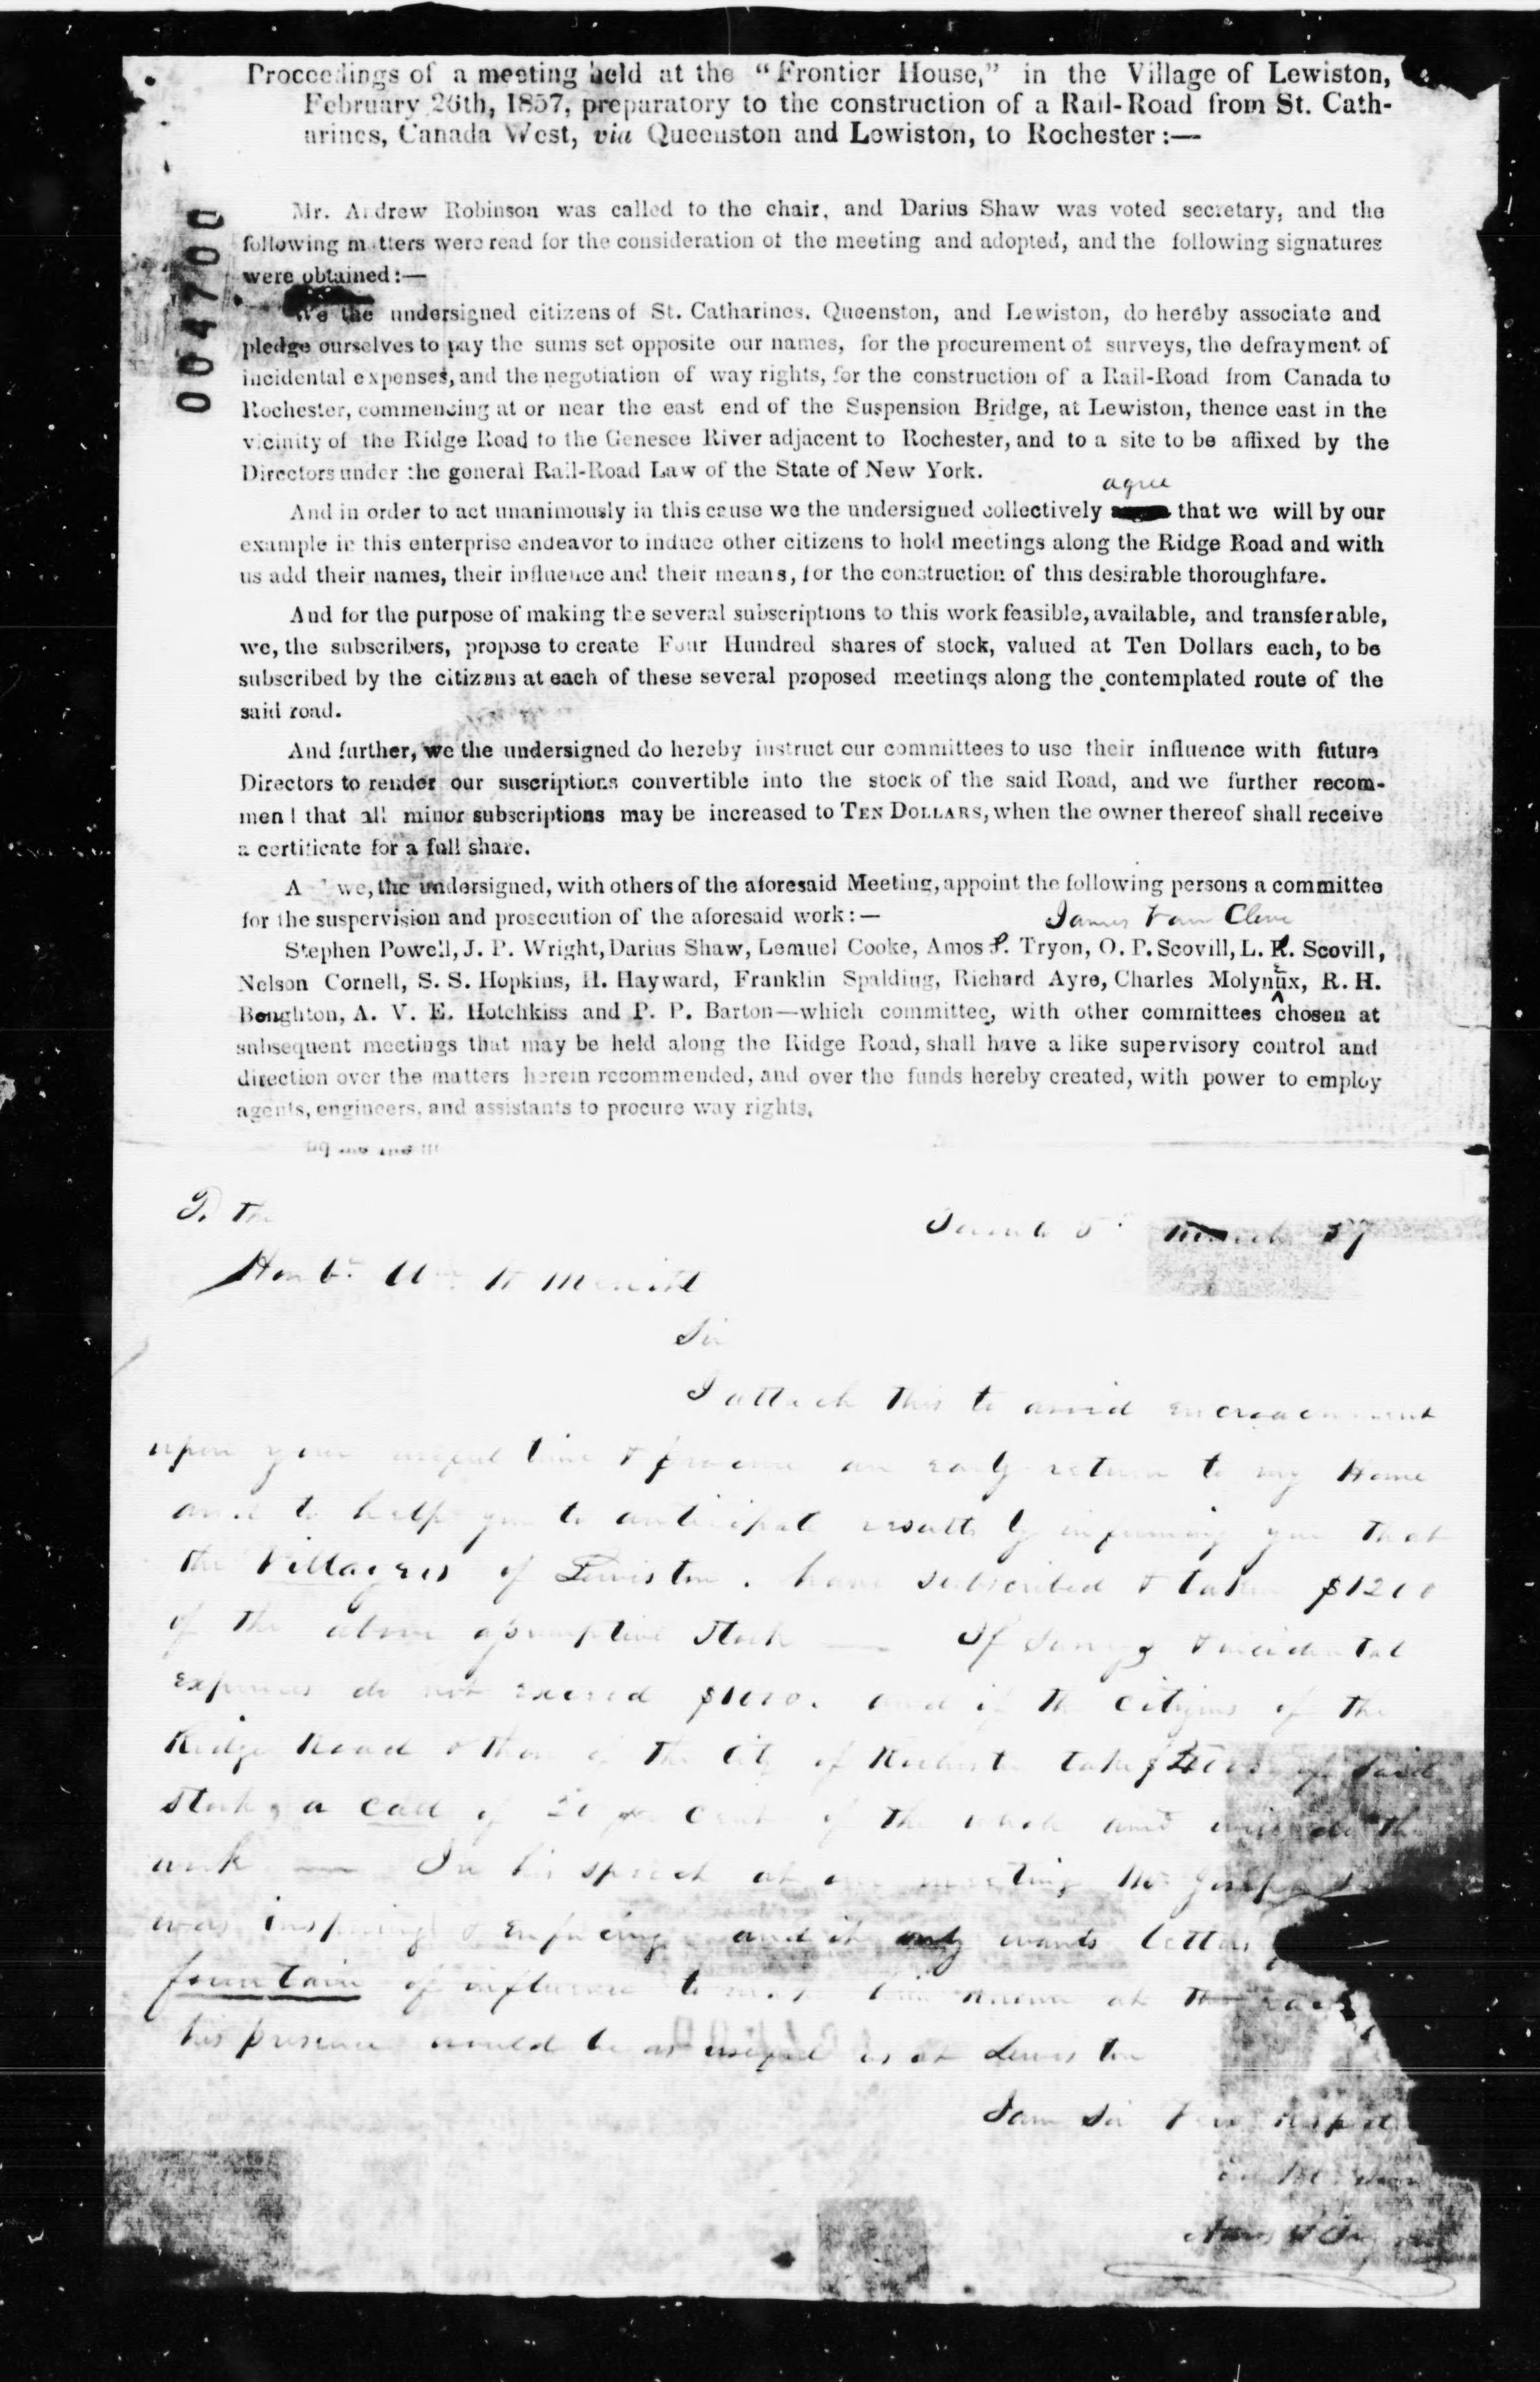 Proceedings of a meeting held at the "Frontier House," in the Village of Lewiston,
February 26th, 1857, preparatory to the construction of a Rail-Road from St. Cath-
arines, Canada West, via Queenston and Lewiston, to Rochester:—
004700
Mr. Andrew Robinson was called to the chair, and Darius Shaw was voted secretary, and the
following matters were read for the consideration of the meeting and adopted, and the following signatures
were obtained:—
We the undersigned citizens of St. Catharines, Queenston, and Lewiston, do hereby associate and
pledge ourselves to pay the sums set opposite our names, for the procurement of surveys, the defrayment of
incidental expenses, and the negotiation of way rights, for the construction of a Rail-Road from Canada to
Rochester, commencing at or near the east end of the Suspension Bridge, at Lewiston, thence east in the
vicinity of the Ridge Road to the Genesee River adjacent to Rochester, and to a site to be affixed by the
Directors under the general Rail-Road Law of the State of New York.
agree
And in order to act unanimously in this cause we the undersigued collectively that we will by our
example in this enterprise endeavor to induce other citizens to hold meetings along the Ridge Road and with
us add their names, their influence and their means, for the construction of this desirable thoroughfare.
And for the purpose of making the several subscriptions to this work feasible, available, and transferable,
we, the subscribers, propose to create Four Hundred shares of stock, valued at Ten Dollars each, to be
subscribed by the citizens at each of these several proposed meetings along the contemplated route of the
said road.
And further, we the undersigned do hereby instruct our committees to use their influence with future
Directors to render our suscriptions convertible into the stock of the said Road, and we further recom-
mend that all minor subscriptions may be increased to TEN DOLLARS, when the owner thereof shall receive
a certificate for a full share.
A we, the undersigned, with others of the aforesaid Meeting, appoint the following persons a committee
for the suspervision and prosecution of the aforesaid work:—
James Van Cleve
Stephen Powell, J. P. Wright, Darius Shaw, Lemuel Cooke, Amos S. Tryon, O. P. Scovill, L. R. Scovill,
Nelson Cornell, S. S. Hopkins, H. Hayward, Franklin Spalding, Richard Ayre, Charles Molynux, R. H.
Boughton, A. V. E. Hotchkiss and P. P. Barton—which committee, with other committees ^ chosen at
subsequent meetings that may be held along the Ridge Road, shall have a like supervisory control and
direction over the matters herein recommended, and over the funds hereby created, with power to employ
agents, engineers, and assistants to procure way rights.
To the
March 57
Honbe. Wm. H Merritt
Sir
I attach this to avoid encroachment
upon your useful time & procure an early return to my Home
and to help you to anticipate results by informing you that
the Villagers of Lewiston. have subscribed & taken $1200
of the above stock — If Surveys & incidental
expenses do not exceed $1000. and if the Citizens of the
Ridge Road & those of the City of Rochester take of said
stock, a call of per Cent of the whole will do the
work — In his speech at our meeting Mr
was inspiring & and it only wants letters
fountain of influence to
his presence would be as useful as at Lewiston
I am Sir Very Respect
Amos S Tryon